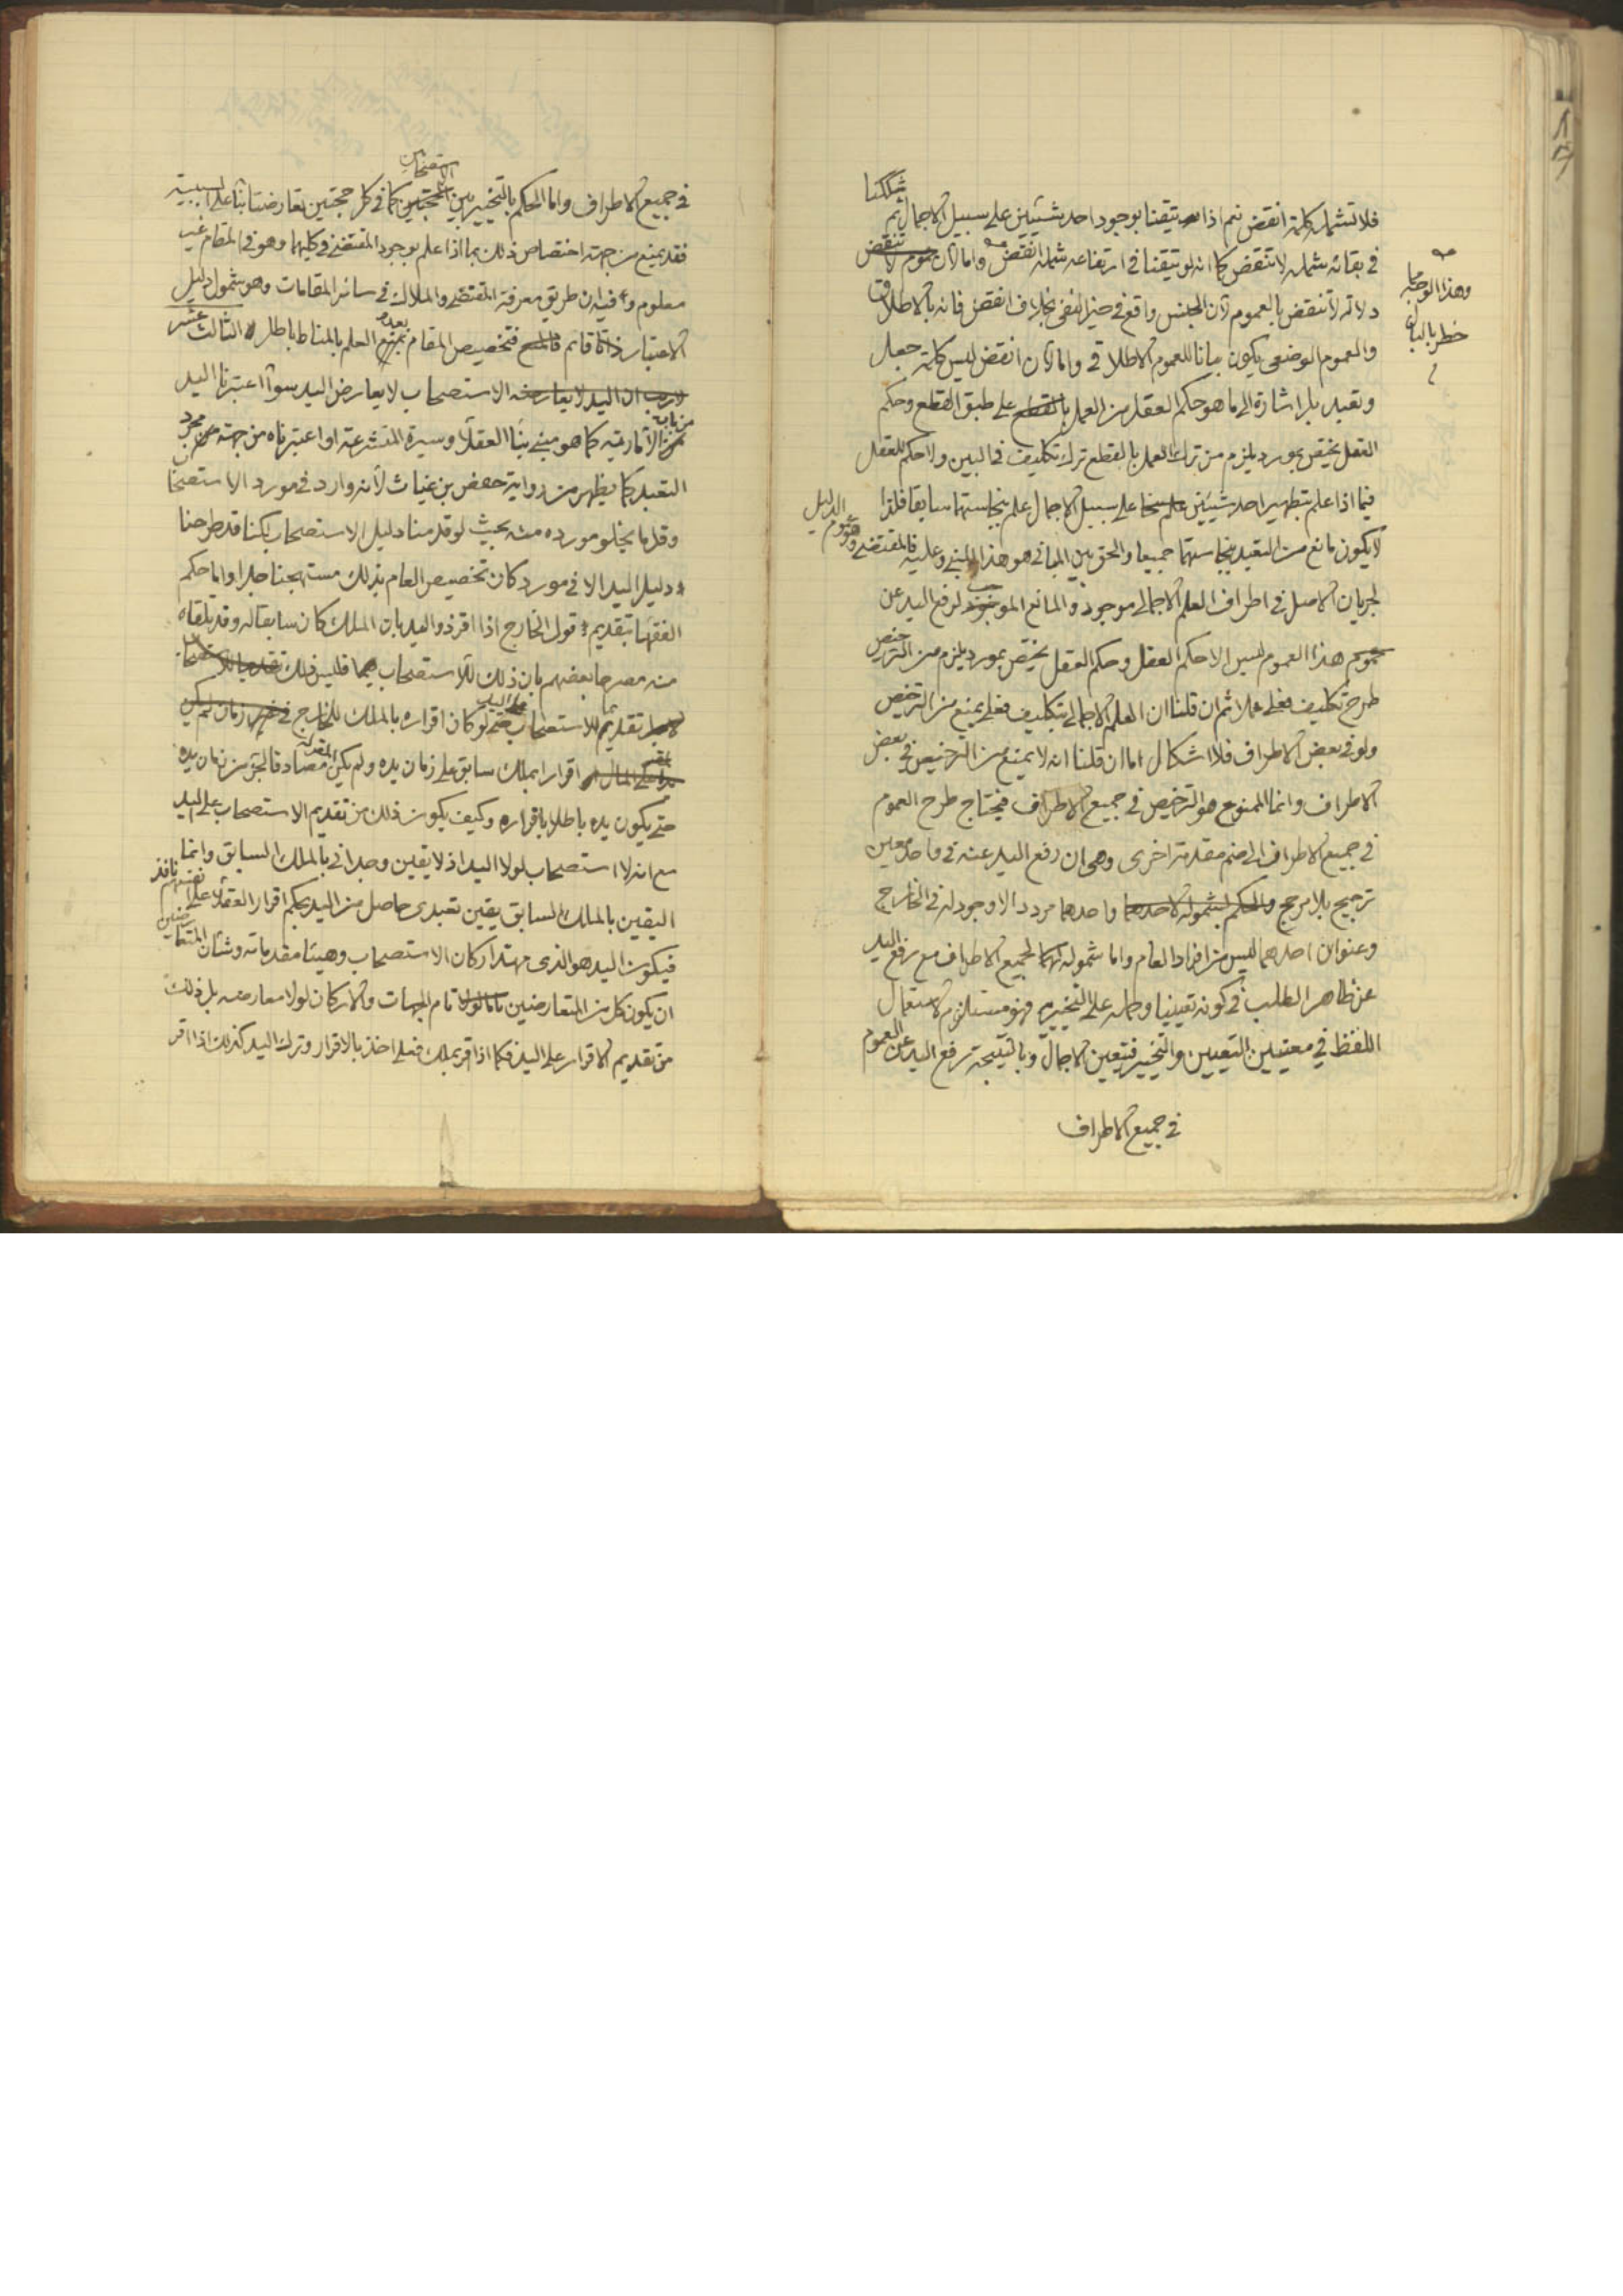 فلا تشمله كلمة انقض نعم اذا تيقنا بوجود احد شيئين على سبيل الاجمال ثم شككنا
في بقائه شمله لا تنقض كما انه لو تيقنا في ارتفاعه شمله انقض واما لان عموم لا تنقض
دلالة لا تنقض بالعموم لان الجنس واقع في حيز النفي بخلاف انقض فانه بالاطلاق
والعموم الوضعي يكون بيانا للعموم الاطلاقي واما لان انقض ليس كلمة جعل
وتعبد بل اشارة الى ما هو حكم العقل من العمل بالقطع على طبق القطع وحكم
العقل يختص بمورد يلزم من ترك العمل بالقطع ترك تكليف في البين ولا حكم للعقل
فيما اذا علم بتطهير احد شيئين على سبيل الاجمال علم بنجاستهما سابقا فلذا
لا يكون مانع من التعبد بنجاستهما جميعا والحق بين المباني هو هذا المبنى وعليه فالمقتضى وهو عموم الدليل
لجريان الاصل في اطراف العلم الاجمالي موجود والمانع الموجب لرفع اليد عن
عموم هذا العموم ليس الا حكم العقل وحكم العقل يختص بمورد يلزم من الترخيص
طرح تكليف فعلي عملا ثم ان قلنا ان العلم الاجمالي بتكليف فعلي يمنع من الترخيص
ولو في بعض الاطراف فلا اشكال اما ان قلنا انه لا يمنع من الترخيص في بعض
الاطراف وانما الممنوع هو الترخيص في جميع الاطراف فيحتاج طرح العموم
في جميع الاطراف الى ضم مقدمة اخرى وهي ان رفع اليد عنه في واحد معين
ترجيح بلا مرجح والحكم بشموله لاحدهما واحدهما مردد الا وجود له في الخارج
وعنوان احدهما ليس من افراد العام واما شموله لهما لجميع الاطراف مع رفع اليد
عن ظاهر الطلب في كونه تعيينيا وحمله على التخيير فهو مستلزم لاستعمال
اللفظ في معنيين التعيين والتخيير فتعين الاجمال وبالنتيجة ترفع اليد عن العموم
في جميع الاطراف
وهذا الوجه
خطر بالبال
في جميع الاطراف واما الحكم بالتخيير بين الاستصحابين كما في كل حجتين تعارضتا بناء على السببية
فقد يمنع من جهة اختصاص ذلك بما اذا علم بوجود المقتضى في كليهما وهو في المقام غير
معلوم وفيه ان طريق معرفة المقتضى والملاك في سائر المقامات وهو شمول دليل
الاعتبار ذاتا قائم فتخصيص المقام بعدم العلم بالمناط باطل الثالث عشر
لا ريب ان اليد لا يعارضه الاستصحاب لا يعارض اليد سواء اعتبرنا اليد
من باب الامارية كما هو مبنى بناء العقلاء وسيرة المتشرعة او اعتبرناه من جهة مجرد
التعبد كما يظهر من رواية حفص بن غياث لانه وارد في مورد الاستصحاب
وقلما يخلو مورده منه بحيث لو قدمنا دليل الاستصحاب لكنا قد طرحنا
دليل اليد الا في مورد كان تخصيص العام بذلك مستهجنا جدا واما حكم
الفقهاء بتقديم قول الخارج اذا اقر ذو اليد بان الملك كان سابقا له وقد تلقاه
منه مصرحا بعضهم بان ذلك للاستصحاب فليس ذلك
تقديما للاستصحاب على اليد حتى لو كان اقراره بالملك للخارج في زمان لم يكن
اقرارا بملك سابق على زمان يده ولم يكن المقر له مصادقا لجزء من زمان يده
حتى يكون يده باطلا باقراره وكيف يكون ذلك من تقديم الاستصحاب على اليد
مع انه لا استصحاب لولا اليد اذ لا يقين وجداني بالملك السابق وانما
اليقين بالملك السابق يقين تعبدي حاصل من اليد بحكم اقرار العقلاء على انفسهم نافذ
فيكون اليد هو الذي مهد اركان الاستصحاب وهيئا مقدماته وشان المتعارضين
ان يكون كل من المتعارضين تام الجهات والاركان لولا معارضه بل ذلك
من تقديم الاقرار على اليد فكما اذا اقر بملك فعلي اخذ بالاقرار وترك اليد كذلك اذا اقر